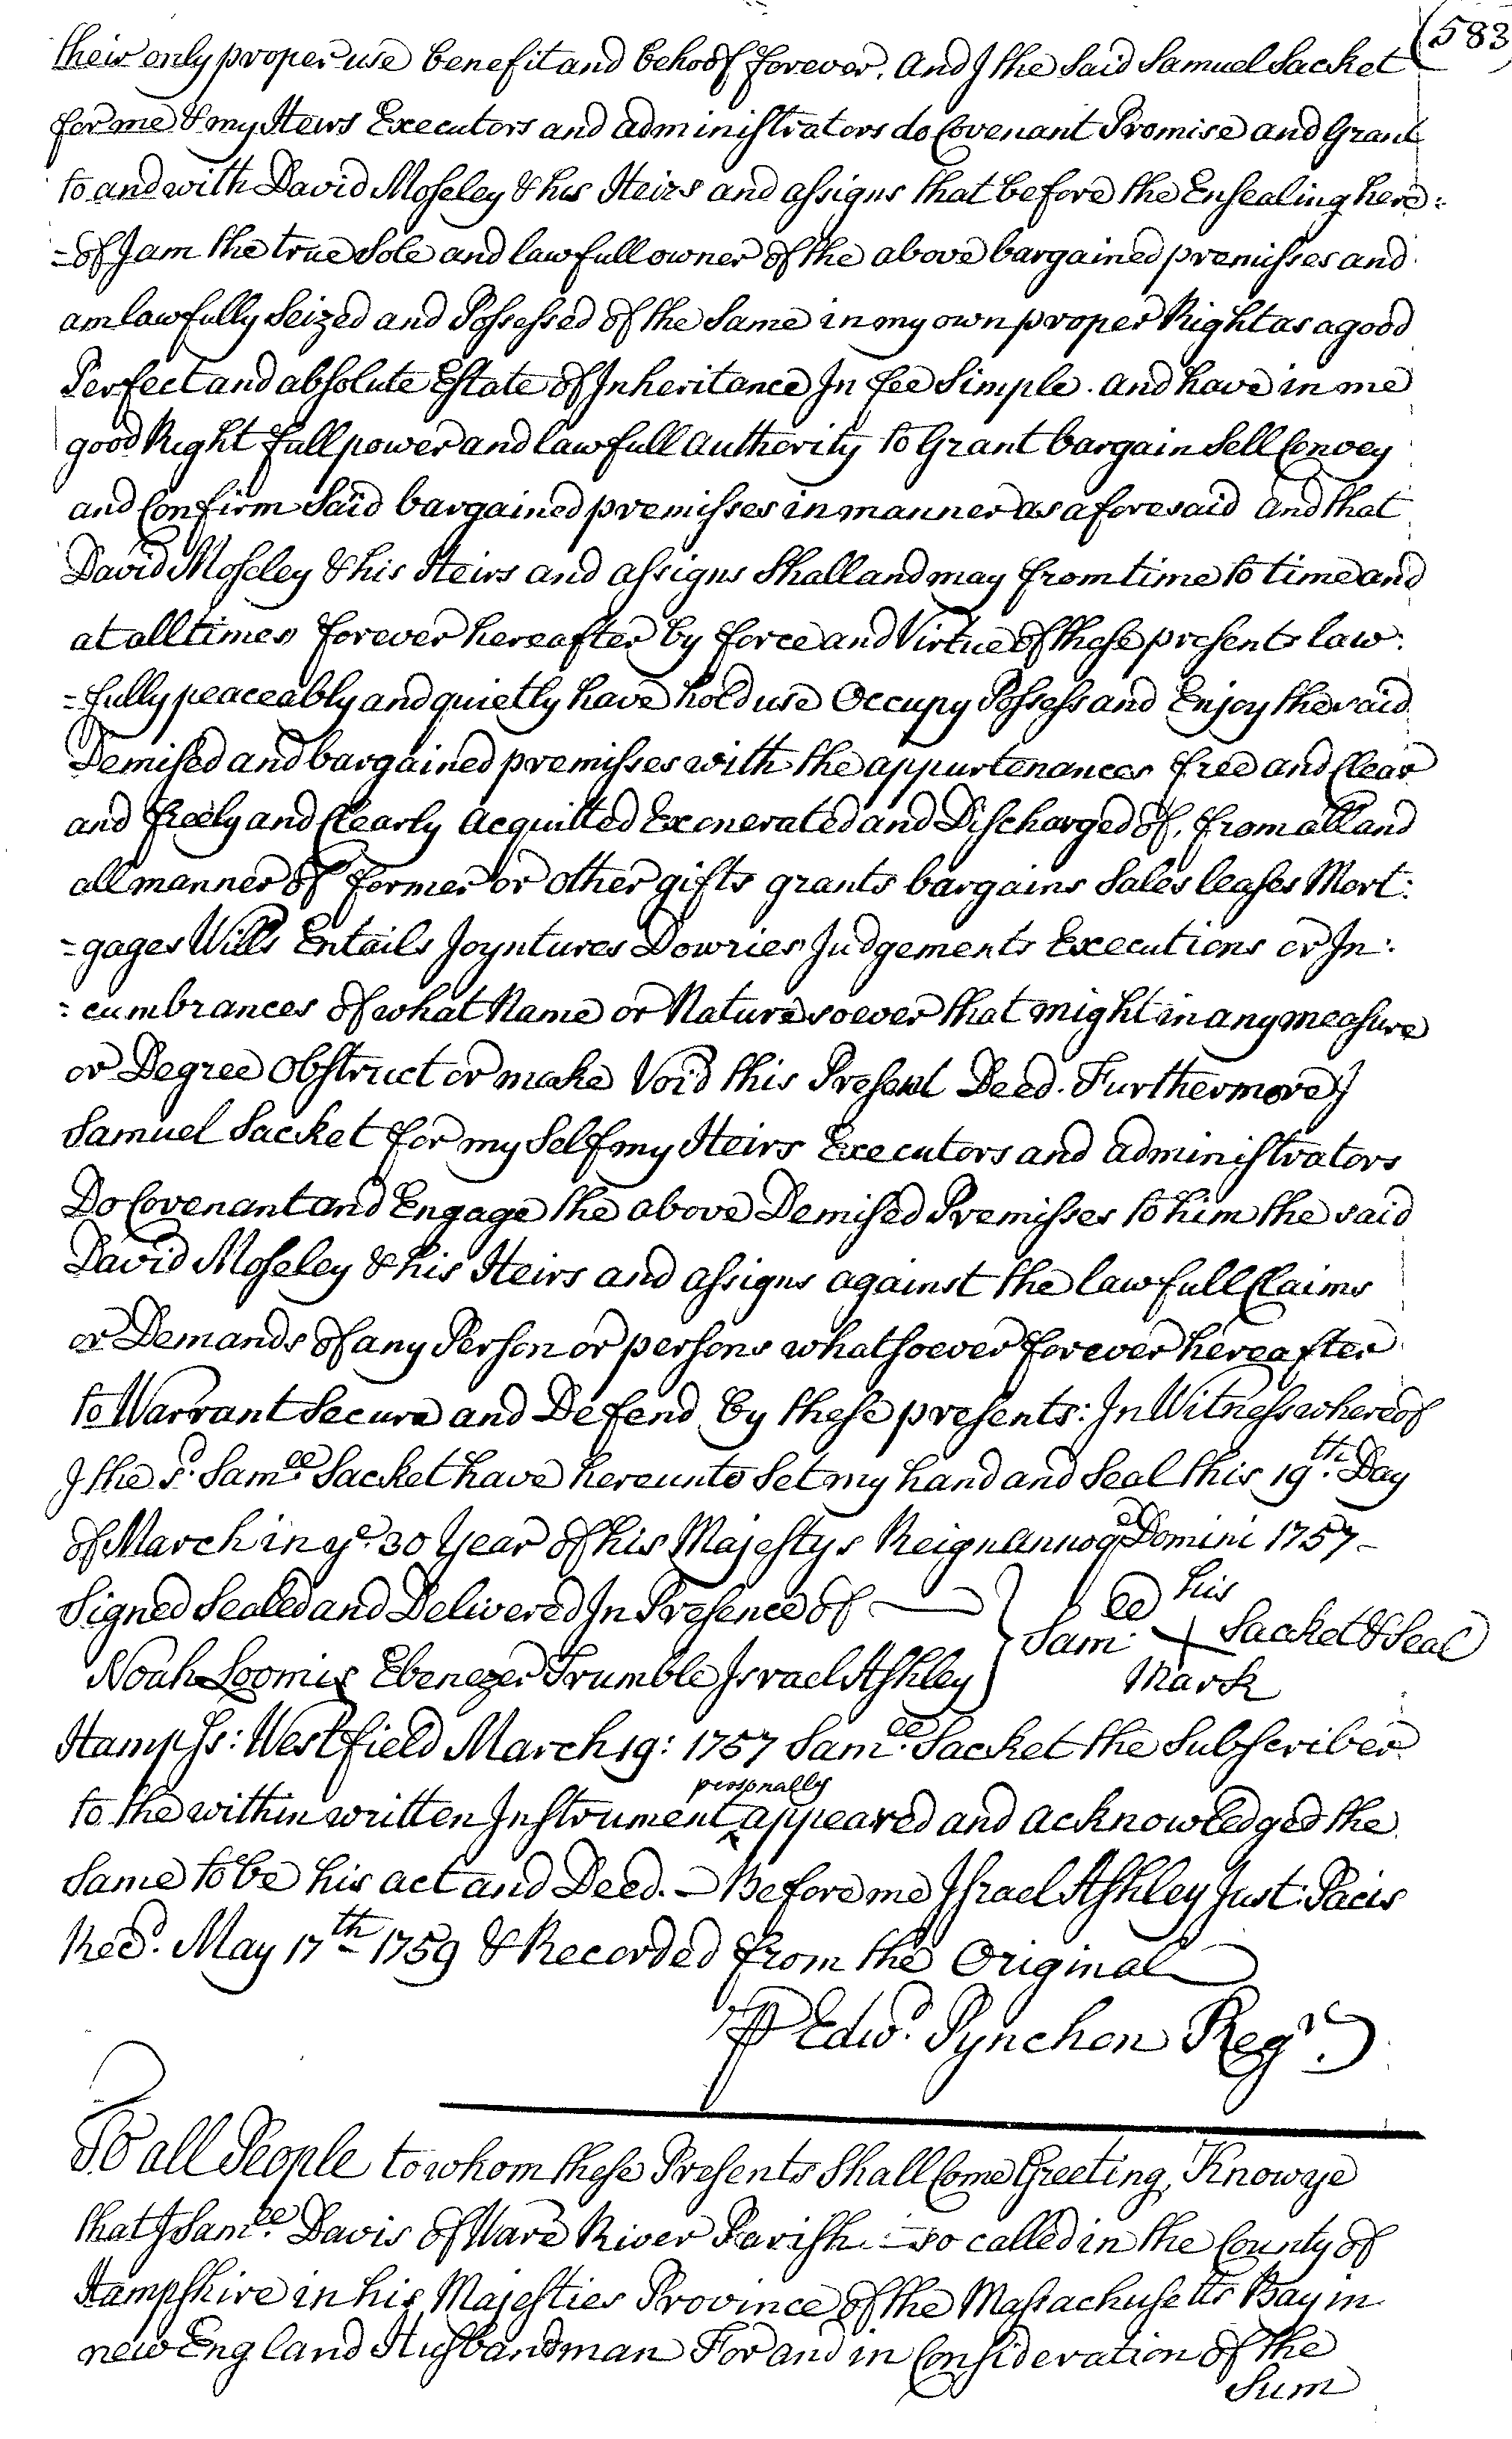 (583
their only proper use benefit and behoof forever. And I the Said Samuel Sacket
for me & my Heirs Executors and administrators do Covenant Promise and Grant
to and with David Moseley & his Heirs and assigns that before the Ensealing here:
=of I am the true Sole and lawfull owner of the above bargained premisses and
am lawfully Seized and Possessed of the Same in my own proper Right as a good
Perfect and absolute Estate of Inheritance In fee Simple. and have in me
good Right full power and lawfull authority to Grant bargain Sell Convey
and Confirm Said bargained premisses in manner as aforesaid and that
David Moseley & his Heirs and assigns Shall and may from time to time and
at all times forever hereafter by force and Virtue of these presents law:
=fully peaceably and quietly have hold use Occupy Possess and Enjoy the said
Demised and bargained premisses with the appurtenances free and Clear
and freely and Clearly acquitted Exonerated and Discharged of, from all and
all manner of former or other gifts grants bargains Sales leases Mort:
=gages Wills Entails Joyntures Dowries Judgements Executions or In:
:cumbrances of what Name or Nature soever that might in any measure
or Degree obstruct or make Void this Present Deed. Furthermore I
Samuel Sacket for my Self my Heirs Executors and administrators
Do Covenant and Engage the above Demised Premisses to him the said
David Moseley & his Heirs and assigns against the lawfull Claims
or Demands of any Person or persons whatsoever forever hereafter
to Warrant Secure and Defend by these presents: In Witness whereof
I the sd. Samll. Sacket have hereunto Set my hand and Seal this 19th. Day
of March in ye. 30 Year of his Majestys Reign annoqe Domini 1757-
Signed Sealed and Delivered In Presence of
his
Samll. + Sacket & Seal
Noah Loomis Ebenezer Trumble Israel Ashley
Mark
Hamp Ss: Westfield March 19: 1757 Samll. Sacket the Subscriber
personally
to the within written Instrument ^ appeared and acknowledged the
Same to be his act and Deed. - Before me Israel Ashley Just: Pacis
Recd. May 17th- 1759 & Recorded from the Original
P Edwd. Pynchon Regr.
To all People to whom these Presents Shall Come Greeting, Know ye
that I Samll. Davis of Ware River Parish :- so called in the County of
Hampshire in his Majesties Province of the Massachusetts Bay in
new England Husbandman For and in Consideration of the
Sum